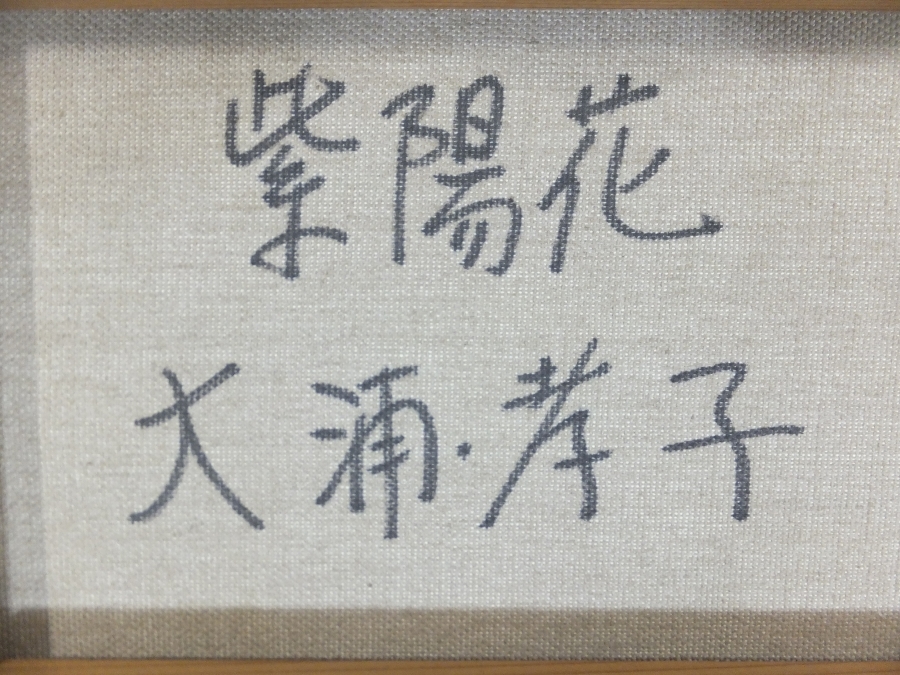 紫陽花
大浦・孝子